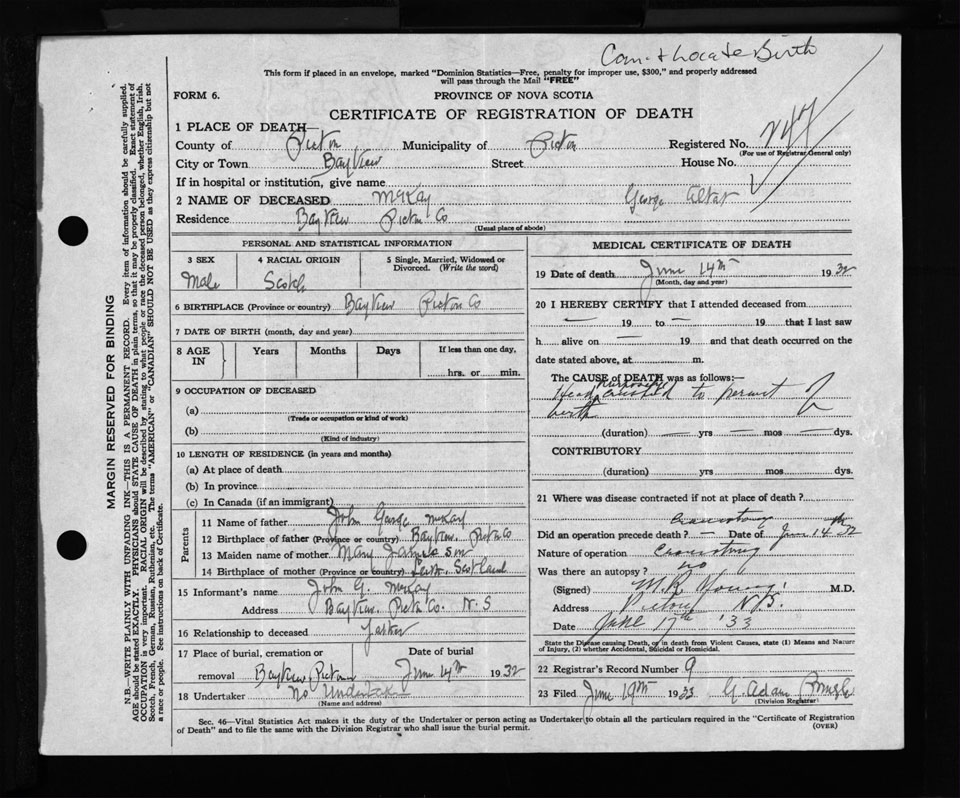 Com. + Locate Birth
This form if placed in an envelope, marked "Dominion Statistics—Free, penalty for improper use, $300," and properly addressed
will pass through the Mail "FREE"
FORM 6.
PROVINCE OF NOVA SCOTIA
CERTIFICATE OF REGISTRATION OF DEATH
1 PLACE OF DEATH—
County of Pictou Municipality of Pictou Registered No.
(For use of Registrar General only)
City or Town Bayview Street House No.
If in hospital or institution, give name
2 NAME OF DECEASED McKay George
Residence Bayview Pictou Co
(Usual place of abode)
PERSONAL AND STATISTICAL INFORMATION
3 SEX 4 RACIAL ORIGIN 5 Single, Married, Widowed or
Divorced. (Write the word)
Male Scotch
6 BIRTHPLACE (Province or country) Bayview Pictou Co
7 DATE OF BIRTH (month, day and year)
8 AGE IN Years Months Days If less than one day,
hrs. or min.
9 OCCUPATION OF DECEASED
(a)
(Trade or occupation or kind of work)
(b)
(Kind of industry)
10 LENGTH OF RESIDENCE (in years and months)
(a) At place of death
(b) In province
(c) In Canada (if an immigrant)
Parents
11 Name of father John George McKay
12 Birthplace of father (Province or country) Bayview Pictou Co
13 Maiden name of mother Mary
14 Birthplace of mother (Province or country) Leith Scotland
15 Informant's name John G. McKay
Address Bayview Pictou Co. N.S
16 Relationship to deceased Father
17 Place of burial, cremation or Date of burial
removal Bayview Pictou June 14th 1932
18 Undertaker No Undertaker
(Name and address)
MEDICAL CERTIFICATE OF DEATH
19 Date of death June 14th 1932
(Month, day and year)
20 I HEREBY CERTIFY that I attended deceased from
— 19 to — 19 that I last saw
h alive on — 19 and that death occurred on the
date stated above, at m.
The CAUSE of DEATH was as follows:—
Head purposely crushed to permit of
birth
(duration) — yrs — mos — dys.
CONTRIBUTORY
(duration) yrs mos dys.
21 Where was disease contracted if not at place of death?
Craniotomy
Did an operation precede death? — Date of June 14th 32
Nature of operation Craniotomy
Was there an autopsy? no
(Signed) M.R. Young M.D.
Address Pictou N.S.
Date June 17th '33
State the Disease causing Death, or in death from Violent Causes, state (1) Means and Nature
of Injury, (2) whether Accidental, Suicidal or Homicidal.
22 Registrar's Record Number 9
23 Filed June 19th 1933 G. Adam
(Division Registrar)
Sec. 46—Vital Statistics Act makes it the duty of the Undertaker or person acting as Undertaker to obtain all the particulars required in the "Certificate of Registration
of Death" and to file the same with the Division Registrar who shall issue the burial permit.
(OVER)
MARGIN RESERVED FOR BINDING
N.B.—WRITE PLAINLY WITH UNFADING INK—THIS IS A PERMANENT RECORD. Every item of information should be carefully supplied.
AGE should be stated EXACTLY. PHYSICIANS should STATE CAUSE OF DEATH in plain terms, so that it may be properly classified. Exact statement of
OCCUPATION is very important. RACIAL ORIGIN will be described by stating to what people or race the deceased person belonged, whether English, Irish,
Scotch, French, German, Russian, Ruthenian, etc. The terms "AMERICAN" or "CANADIAN" SHOULD NOT BE USED as they express citizenship but not
a race or people. See instructions on back of Certificate.